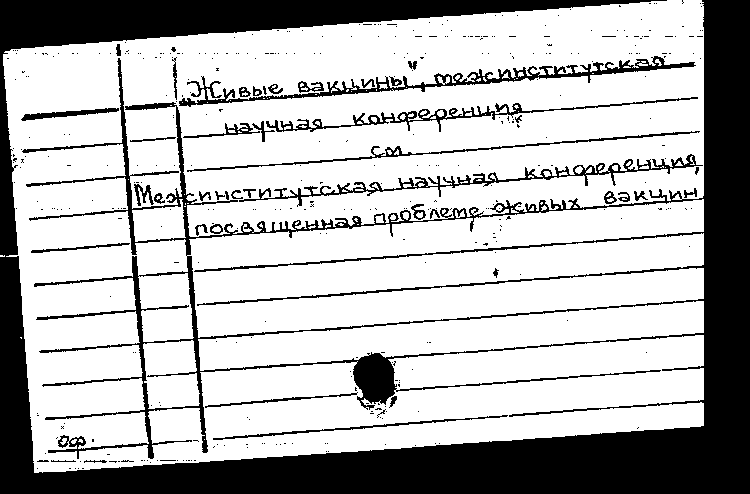 „Живые вакцины", межинститутская
научная конференция
см.
Межинститутская научная конференция,
посвященная проблеме живых вакцин
оф.